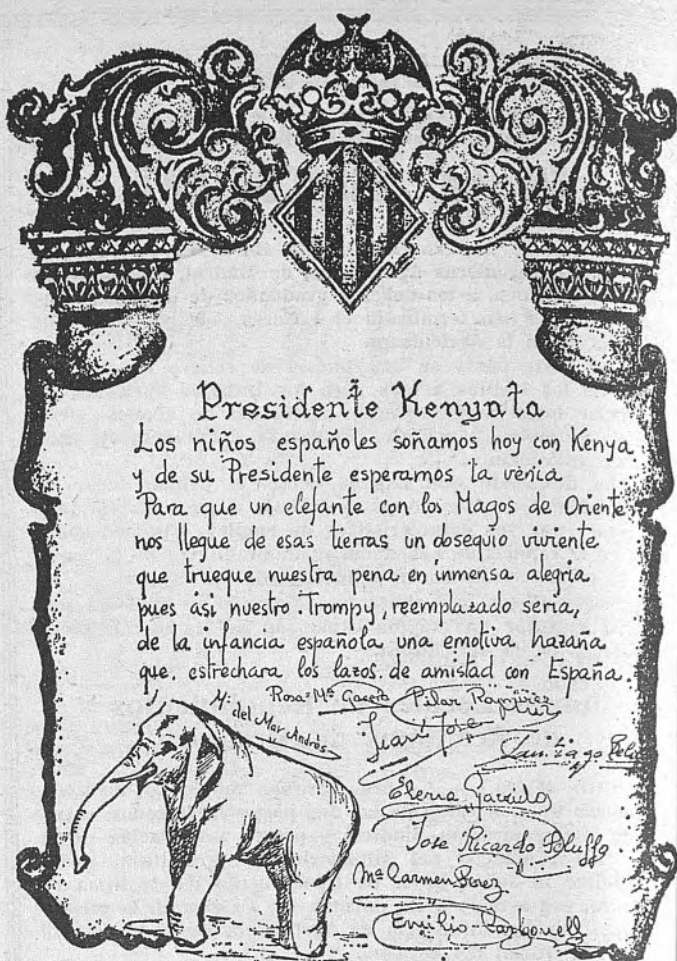 Presidente Kenyata
Los niños españoles soñamos hoy con Kenya
y de su Presidente esperamos la venia
Para que un elefante con los Magos de Oriente
nos llegue de esas tierras un obsequio viviente
que trueque nuestra pena en inmensa alegria
pues ási nuestro Trompy, reemplazado seria,
de la infancia española una emotiva hazaña
que estrechara los lazos de amistad con España.
Mª del Mar Andrés
Rosa Mª
Pilar
Juan José
Santiago
Elena Garrido
Jose Ricardo Boluffo
Mª Carmen Perez
Emilio Carbonell